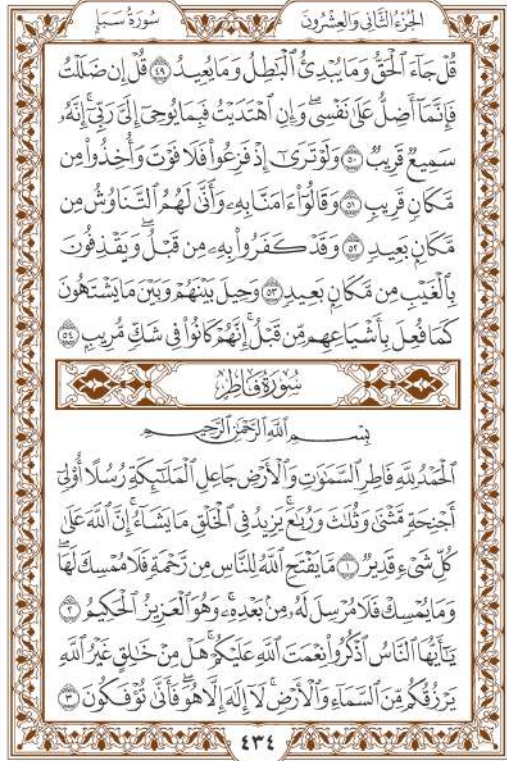 الجُزْءُ الثَّانِي وَالعِشْرُونَ
سُورَةُ سَبَإٍ
قُلْ جَآءَ ٱلْحَقُّ وَمَا يُبْدِئُ ٱلْبَٰطِلُ وَمَا يُعِيدُ ٤٩ قُلْ إِن ضَلَلْتُ
فَإِنَّمَآ أَضِلُّ عَلَىٰ نَفْسِىۖ وَإِنِ ٱهْتَدَيْتُ فَبِمَا يُوحِىٓ إِلَىَّ رَبِّىٓۚ إِنَّهُۥ
سَمِيعٌ قَرِيبٌ ٥٠ وَلَوْ تَرَىٰٓ إِذْ فَزِعُوا۟ فَلَا فَوْتَ وَأُخِذُوا۟ مِن
مَّكَانٍ قَرِيبٍ ٥١ وَقَالُوٓا۟ ءَامَنَّا بِهِۦ وَأَنَّىٰ لَهُمُ ٱلتَّنَاوُشُ مِن
مَّكَانٍۭ بَعِيدٍ ٥٢ وَقَدْ كَفَرُوا۟ بِهِۦ مِن قَبْلُۖ وَيَقْذِفُونَ
بِٱلْغَيْبِ مِن مَّكَانٍۭ بَعِيدٍ ٥٣ وَحِيلَ بَيْنَهُمْ وَبَيْنَ مَا يَشْتَهُونَ
كَمَا فُعِلَ بِأَشْيَاعِهِم مِّن قَبْلُۚ إِنَّهُمْ كَانُوا۟ فِى شَكٍّ مُّرِيبٍۭ ٥٤
سُورَةُ فَاطِرٍ
بِسْمِ ٱللَّهِ ٱلرَّحْمَٰنِ ٱلرَّحِيمِ
ٱلْحَمْدُ لِلَّهِ فَاطِرِ ٱلسَّمَٰوَٰتِ وَٱلْأَرْضِ جَاعِلِ ٱلْمَلَٰٓئِكَةِ رُسُلًا أُو۟لِىٓ
أَجْنِحَةٍ مَّثْنَىٰ وَثُلَٰثَ وَرُبَٰعَۚ يَزِيدُ فِى ٱلْخَلْقِ مَا يَشَآءُۚ إِنَّ ٱللَّهَ عَلَىٰ
كُلِّ شَىْءٍ قَدِيرٌ ١ مَّا يَفْتَحِ ٱللَّهُ لِلنَّاسِ مِن رَّحْمَةٍ فَلَا مُمْسِكَ لَهَاۖ
وَمَا يُمْسِكْ فَلَا مُرْسِلَ لَهُۥ مِنۢ بَعْدِهِۦۚ وَهُوَ ٱلْعَزِيزُ ٱلْحَكِيمُ ٢
يَٰٓأَيُّهَا ٱلنَّاسُ ٱذْكُرُوا۟ نِعْمَتَ ٱللَّهِ عَلَيْكُمْۚ هَلْ مِنْ خَٰلِقٍ غَيْرُ ٱللَّهِ
يَرْزُقُكُم مِّنَ ٱلسَّمَآءِ وَٱلْأَرْضِۚ لَآ إِلَٰهَ إِلَّا هُوَۖ فَأَنَّىٰ تُؤْفَكُونَ ٣
٤٣٤